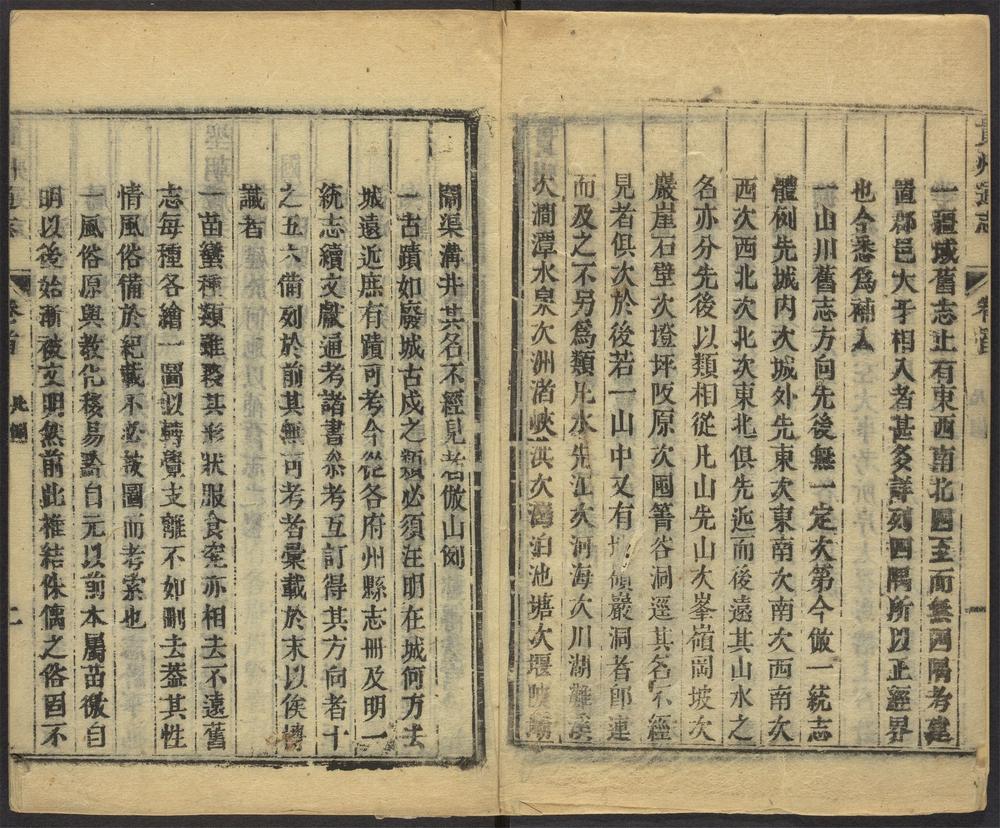 貴州通志
卷首
一疆域舊志止有東西南北四至而無四隅考建
置郡邑犬牙相入者甚多詳列四隅所以正經界
也今悉爲補入
一山川舊志方向先後無一定次第今倣一統志
體例先城內次城外先東次東南次南次西南次
西次西北次北次東北俱先近而後遠其山水之
名亦分先後以類相從凡山先山次峯嶺岡坡次
巖崖石壁次墱坪阪原次囤箐谷洞逕其名不經
見者俱次於後若一山中又有 巖洞者卽連
而及之不另爲類凡水先江次河海次川湖灘溪
次澗潭水泉次洲渚峽洪次灣泊池塘次堰
閘渠溝井其名不經見者倣山例
一古蹟如廢城古戍之類必須注明在城何方去
城遠近庶有蹟可考今從各府州縣志冊及明一
統志續文獻通考諸書叅考互訂得其方向者十
之五六備列於前其無可考者彙載於末以俟博
識者
一苗蠻種類雖夥其形狀服食寔亦相去不遠舊
志每種各繪一圖以轉覺支離不如刪去葢其性
情風俗備於紀載不必披圖而考索也
一風俗原與教化移易黔自元以前本屬苗徼自
明以後始漸被文明然前此椎結侏㒧之俗固不
卷首
凡例
二